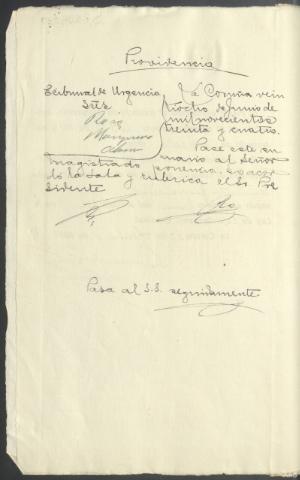 Providencia
Tribunal de Urgencia
Sres
Rojo
La Coruña vein
tiocho de junio de
mil novecientos
treinta y cuatro.
Pase este su
mario al Señor
magistrado ponencia. Lo acor
dó la Sala y rubrica el Sr Pre
sidente
Pasa al S.S. seguidamente